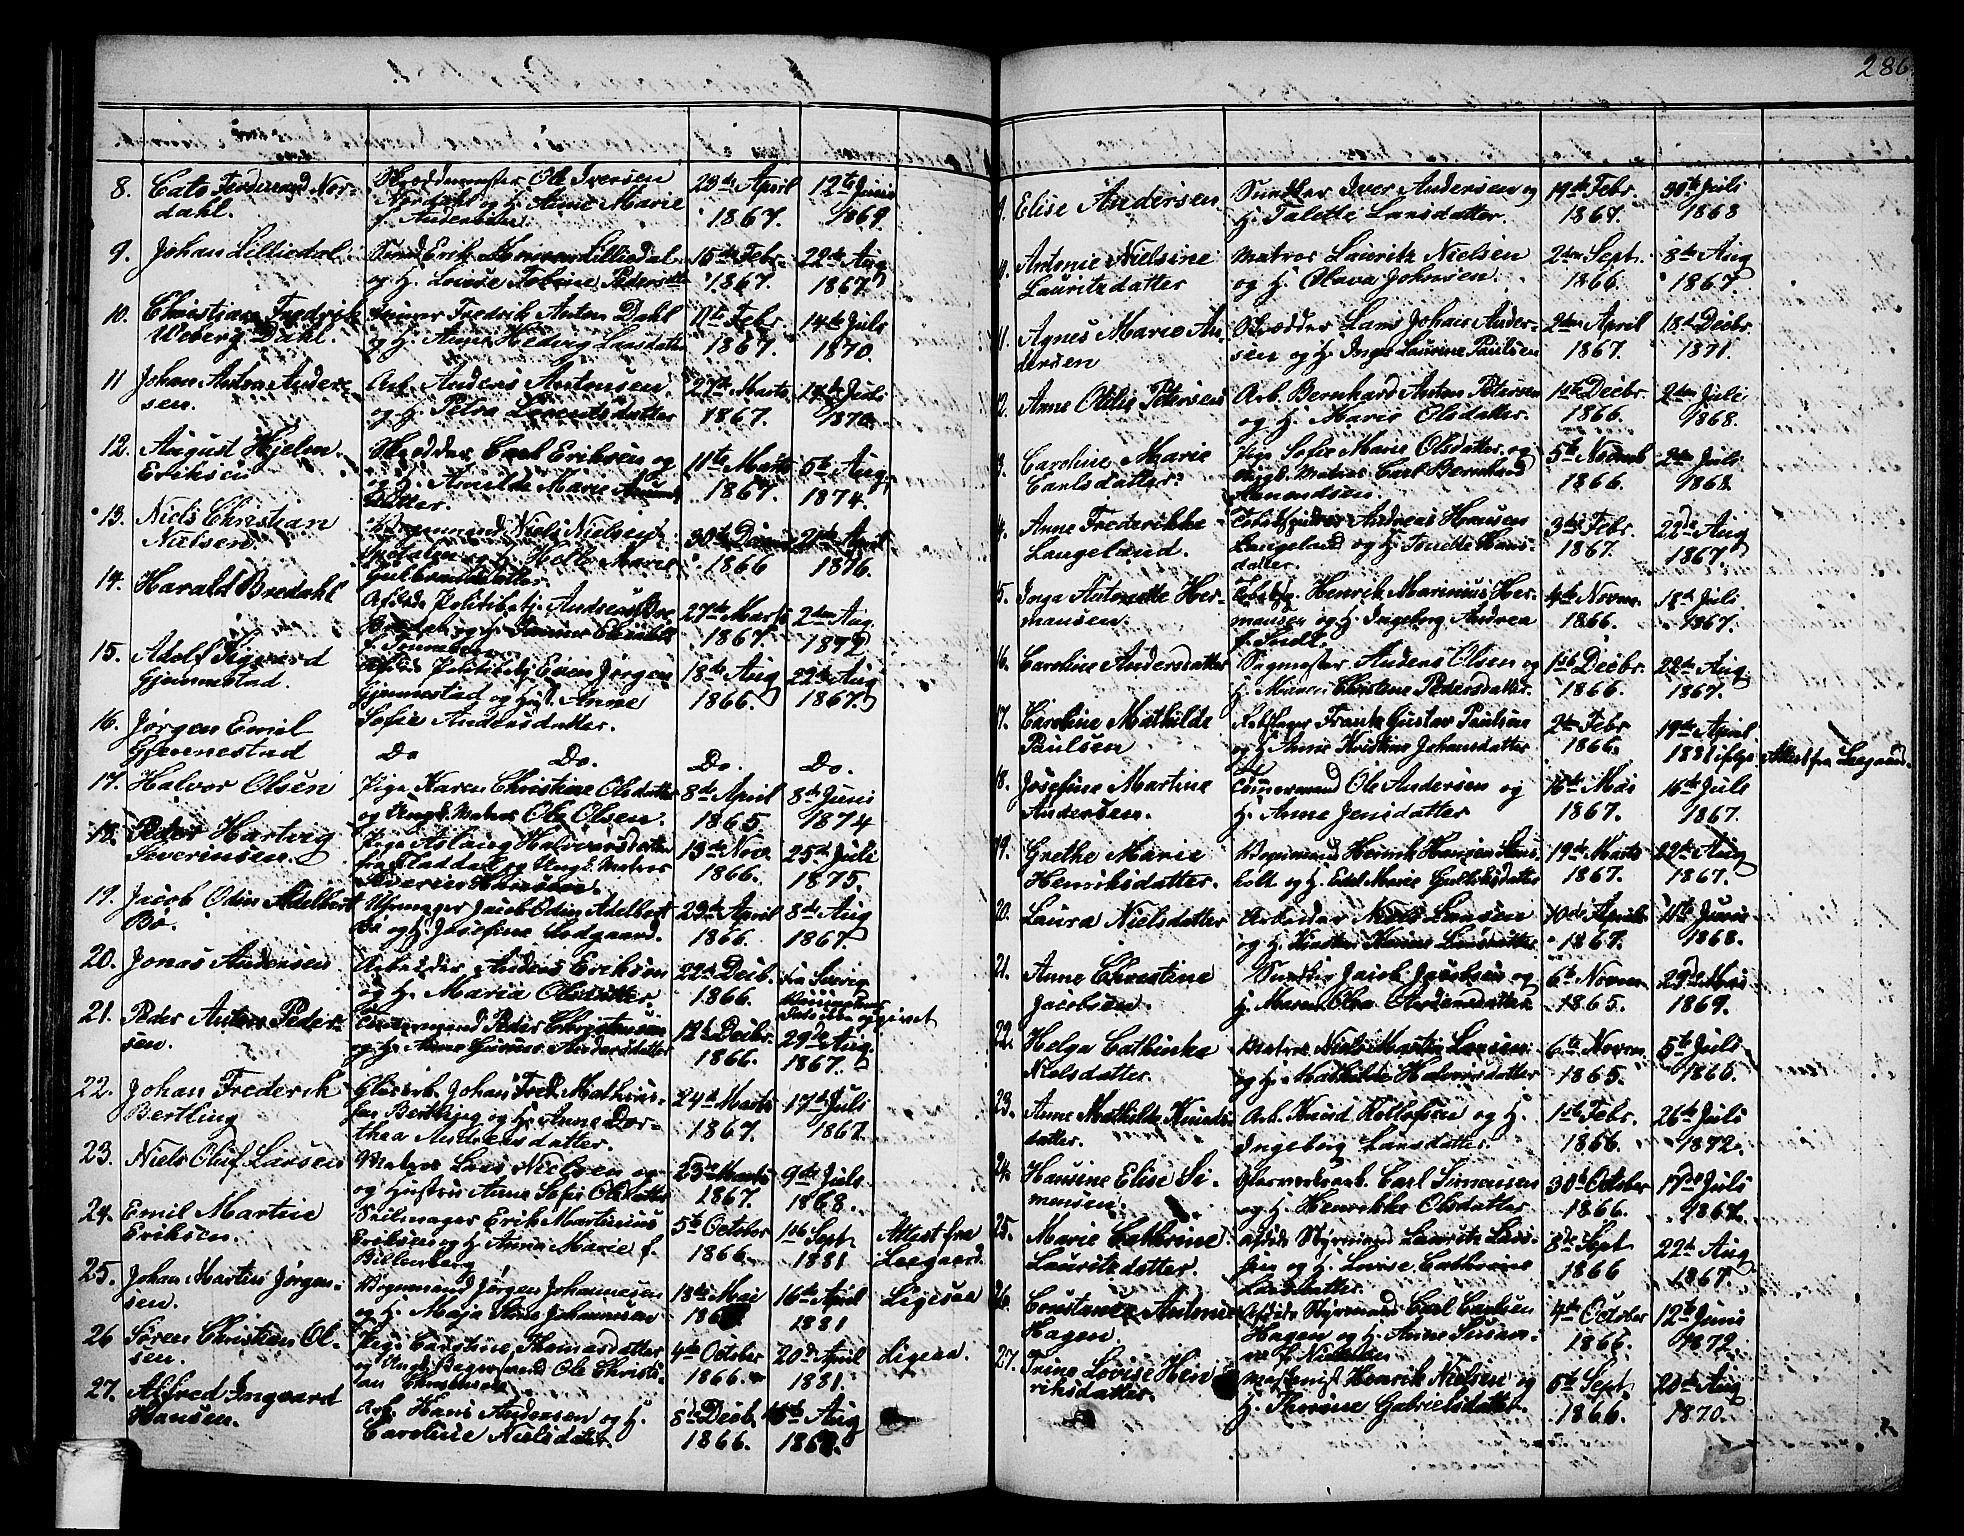 286
8. Cato Ferdinand Nor-
dahl.
Skræddermester Ole Iversen
Nordahl og H. Anne Marie
f. Andersen
23de April
1867.
12te Juni
1869.
9. Johan Lilliedal.
og H. Lovise Toline Pedersdtr
15de Febr.
1867.
22de Aug
1867.
10. Christian Fredrik
Weberg Dahl.
Fredrik Anton Dahl
og H. Anne Hedvig Larsdatter
11te Febr
1867.
14de Juli
1870.
11 Johan Anton Ander-
sen.
Arb. Anders Antonsen
og H. Petra Lorentsdatter
27de Marts
1867.
14de Juli
1870.
12. August Hjelm.
Eriksen
Skrædder Carl Eriksen og
og H. Amilde Marie
datter.
11te Marts
1867.
5te Aug.
1874.
13. Niels Christian
Nielsen
Borgermand Niels Nielsen
og H. Helle Marie
Gulbrandsdatter.
30te
1866
21de April
1876.
14. Harald Bredahl
Afdøde Politibetj. Andreas
27de Marts
1867.
2den Aug.
1872
15. Adolf Sigvard
Gjennestad.
Afdøde Politibetj Even Jørgen
Gjennestad og Hust. Anne
Sofie Andersdatter.
18de Aug
1866.
22de Aug
1867.
16. Jørgen Emil
Gjennestad
Do Do.
Do.
Do.
17. Halvor Olsen
Pige Karen Christine Olsdatter
og Ungk. Matros Ole Olsen.
8de April
1865
8de Juni
1874
18. Peder Hartvig
Severinsen.
Pige Aslaug Halvorsdatter
fra Fladdal og Ungk. Matros
Severin Hansen
13de Nov.
1866.
25de Juli
1875.
19. Jacob Odin Adelbert
Bö.
Uhrmager Jacob Odin Adelbert
Bö og H. Josefine Aadgaard.
23de April
1866.
8de Aug
1867.
20. Jonas Andersen
Arbeider Anders Eriksen
og H. Maria Olsdatter
22de Decb.
1866.
fra Sverig
21. Peder Anton Peder-
sen.
Peder Christensen
og H. Anne Gurine Andersdatter
12te Decbr
1866.
29de Aug.
1867.
22. Johan Frederik
Bertling
Glasarb. Johan Fred. Mathias-
sen Bertling og H. Anne Dor-
thea Andreasdatter.
24de Marts
1867.
17de Juli
1867.
23. Niels Oluf Larsen
Matros Lars Nielsen og
og Hustru Anne Sofie Olsdatter
23de Marts
1867.
9de Juli
1868.
24. Emil Martin
Eriksen.
Seilmager Erik Martinius
Eriksen og H. Anna Marie f.
Billenberg
5te October
1866.
1ste Sept.
1881
Attest fra
Leegaard.
25. Johan Martin Jørgen-
sen.
Borgermand Jørgen Johannesen
og H. Maja Stine Johannesen
13de Mai
16de April
1881
Ligesaa
26 Søren Christian Ol-
sen.
Pige Caroline Thomasdatter
og Ungk. Bagersvend Ole Christi-
an Christensen
4de October
1866.
20de April
1881.
Ligesaa.
27. Alfred Ingvard
Hansen.
Arb. Hans Andersen og H.
Caroline Nielsdatter.
8de Decb.
1866.
5te Aug
1868.
9. Elise Andersen
Snedker Iver Andersen og
H. Talette Larsdatter.
19de Febr.
1867.
30te Juli
1868
10. Antonie Nielsine
Lauritzdatter
Matros Lauritz Nielsen
og H. Olava Johnsen.
2den Sept.
1866.
8de Aug
1867
11. Agnes Marie An-
dersen
Skrædder Lars Johan Ander-
sen og H. Inge Laurine Paulsen
2den April
1867.
18de Decbr.
1871.
12. Anne Otilie Petersen
Arb. Bernhard Anton Petersen
og H. Marie Olsdatter.
1ste Decbr.
1866.
2den Juli
1868.
13. Caroline Marie
Carlsdatter
Pige Sofie Marie Olsdatter og
Ungk. Matros Carl Bernhard
Amondsen
5te Novemb
1866.
2den Juli
1868.
14. Anne Frederikke
Langeland.
Andreas Hansen
Langeland og H. Tonette Hans-
datter.
3die Febr.
1867.
22de Aug
1867.
15. Inga Antonette Her-
mansen.
Henrik Marinius Her-
mansen og H. Ingeborg Andrea
f. Lindt.
4de Novem.
1866.
18de Juli
1867.
16. Caroline Andersdatter
Sagmester Anders Olsen og
H. Maren Christine Pedersdatter.
1ste Decbr.
1866.
22de Aug
1867.
17. Caroline Mathilde
Paulsen
Rebslager Frantz Gustav Paulsen
og H. Anne Kristine Johansdatter
2den Febr
1866.
19de April
1881 ifølge Attest fra Leegaard.
18. Josefine Martine
Andersen.
Tømmermand Ole Andersen og
H. Anne Jensdatter
16de Mai
1867.
16de Juli
1867.
19. Grethe Marie
Henriksdatter.
Henrik Hansen
holt og H. Edel Marie Gulliksdatter
19de Marts
1867.
22de Aug
1867.
20. Laura Nielsdatter
Arbeider Niels Larsen
og H. Kirsten Karine
10de April
1867.
11te Juni
1868.
21. Anne Christine
Jacobsen
Snedker Jacob Jacobsen og
H. Maren Olva
6te Novem
1865.
29de Mai
1869.
22. Helga Cathinka
Nielsdatter.
Matros Niels Martin Larsen
og H. Mathilde Halvorsdatter
6te Novem.
1865.
5te Juli
1866.
23. Anne Mathilde Knuds-
datter.
Arb. Knud Kollofsen og H.
Ingeborg Larsdatter.
1ste Febr.
1866.
26de Juli
1872.
24. Hansine Elise Si-
monsen.
Glasværksarb. Carl Simonsen
og H. Henrikke Olsdatter.
30te October
1866.
17de Juli
1867.
25. Marie Cathrine
Lauritzdatter.
Afdøde Styrmand Lauritz Lar-
sen og H. Lovise Cathrine
Larsdatter.
8de Sept
1866
22de Aug
1867.
26. Constance Antonie
Hagen.
Afdøde Styrmand Carl Carlsen
Hagen og H. Anne Susan-
ne f. Nielsen
4de October
1866.
12te Juni
1872.
27. Trine Lovise Hen-
riksdatter.
Maskinist Henrik Nielsen og
H. Thorine Gabrielsdatter.
5te Sept.
1866.
20de Aug
1870.